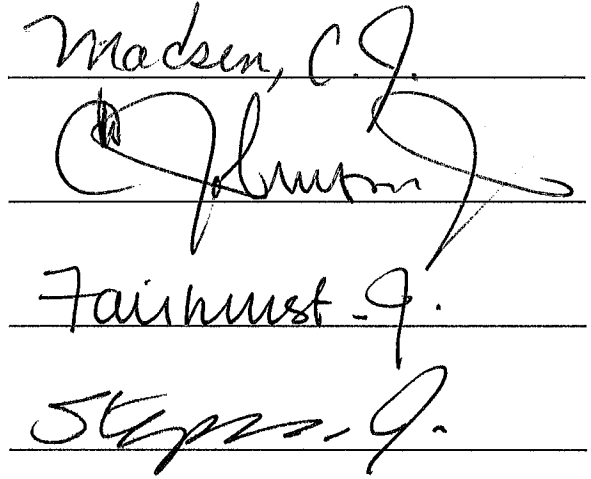 Madsen, C.J.
C Johnson J
Fairhurst - J.
Stephens, J.